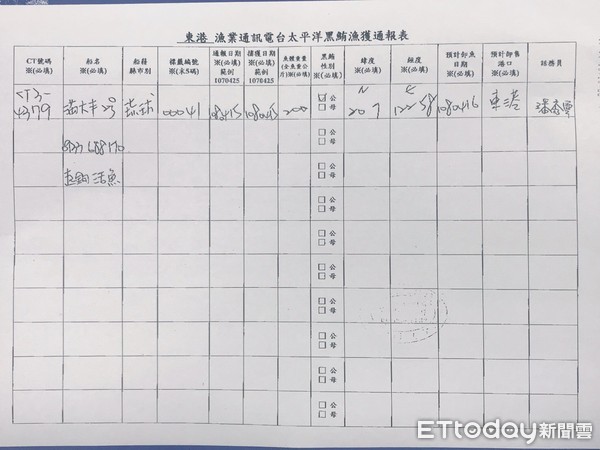 東港 漁業通訊電台太平洋黑鮪漁獲通報表
CT號碼 ※(必填) 船名 ※(必填) 船籍 縣市別 標籤編號 ※(末5碼) 通報日期 ※(必填) 範例 1070425 捕獲日期 ※(必填) 範例 1070425 魚體重量 (全魚重公斤)※(必填) 黑鮪 性別 ※(必填) 緯度 ※(必填) 經度 ※(必填) 預計卸魚 日期 ※(必填) 預計卸售 港口 ※(必填) 話務員
CT3-4379 滿大丰2号 琉球 00041 1080415 1080415 200 ☑ 公 □ 母 N 20 7 E 122 58 1080416 東港
□ 公
□ 母
活魚
□ 公
□ 母
□ 公
□ 母
□ 公
□ 母
□ 公
□ 母
□ 公
□ 母
□ 公
□ 母
□ 公
□ 母
□ 公
□ 母
ETtoday新聞雲